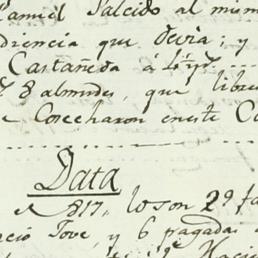 Manuel Salcido al mism
diencia que devia; y
Castañeda á
8 almudes, que libre
e Cosecharon en este Co
Data
817, los on 29 fa
acio Tove, y 6 pagada